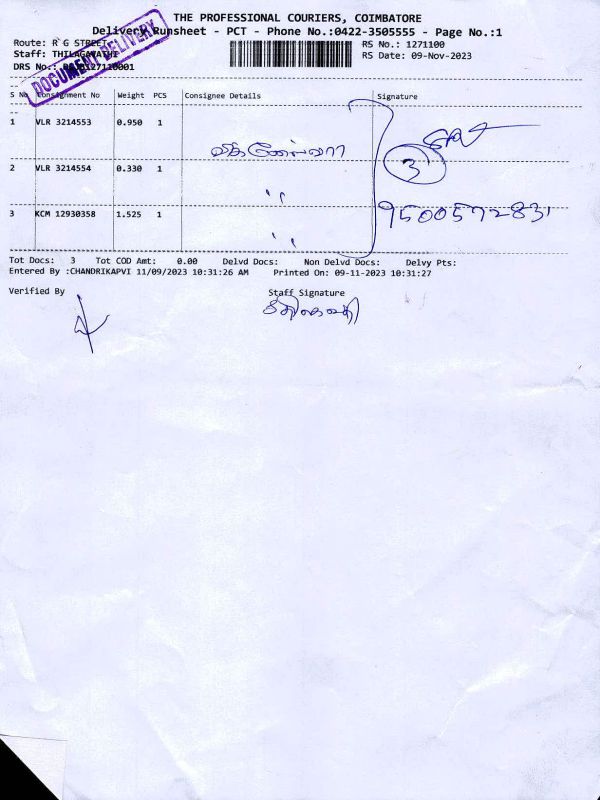 THE PROFESSIONAL COURIERS, COIMBATORE
Delivery Runsheet - PCT - Phone No.:0422-3505555 - Page No.:1
Route: R G STREET
RS No.: 1271100
Staff: THILAGAVATHI
RS Date: 09-Nov-2023
DRS No.:
DOCUMENT DELIVERY
S No Consignment No Weight PCS Consignee Details Signature
1 VLR 3214553 0.950 1
3
2 VLR 3214554 0.330 1 ,,
9500572831
3 KCM 12930358 1.525 1 ,,
Tot Docs: 3 Tot COD Amt: 0.00 Delvd Docs: Non Delvd Docs: Delvy Pts:
Entered By :CHANDRIKAPVI 11/09/2023 10:31:26 AM Printed On: 09-11-2023 10:31:27
Verified By Staff Signature